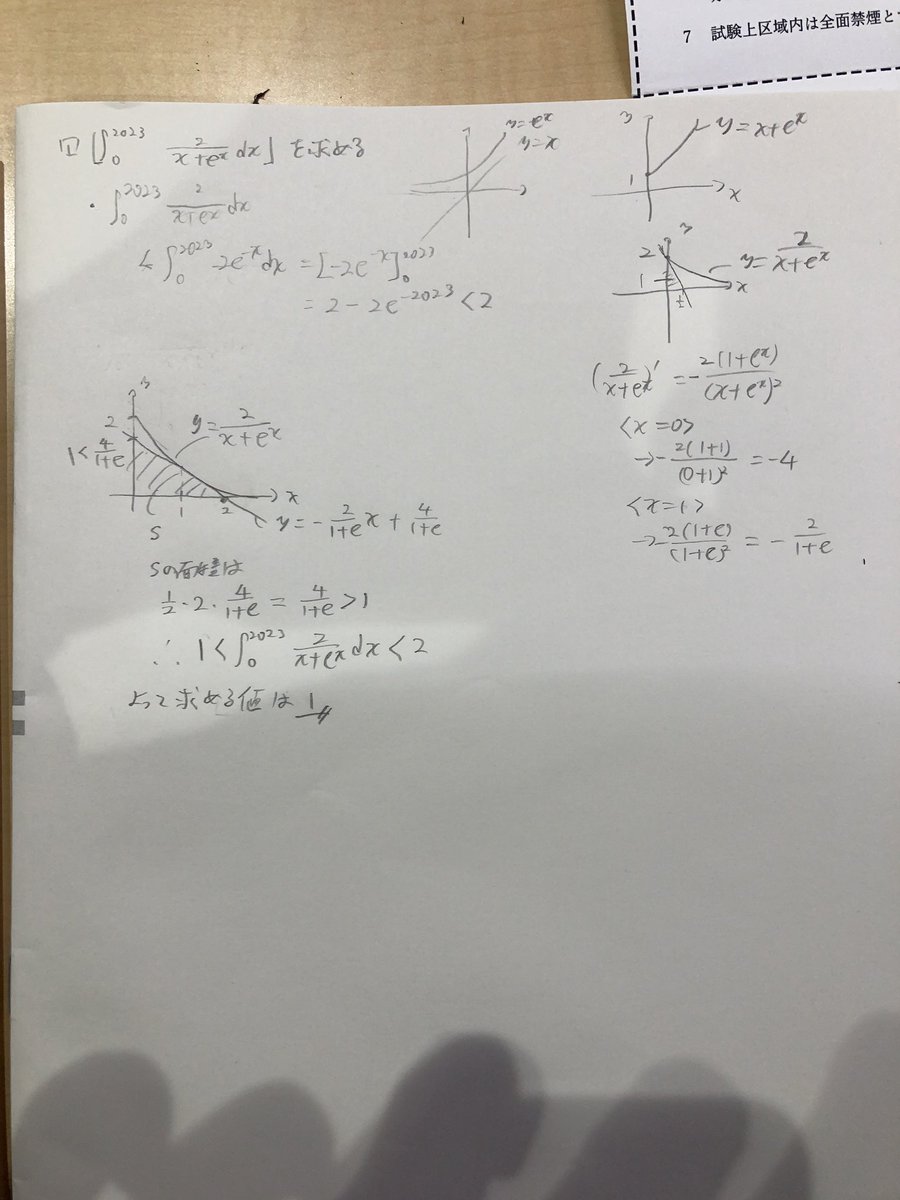 7 試験上区域内は全面禁煙と
1 ⌊∫₀²⁰²³ 2/(x+eˣ) dx⌋ を求める
・∫₀²⁰²³ 2/(x+eˣ) dx
< ∫₀²⁰²³ 2e⁻ˣ dx = [-2e⁻ˣ]₀²⁰²³
= 2 - 2e⁻²⁰²³ < 2
y=eˣ
y=x
y
1
y=x+eˣ
x
y
2
1
y=2/(x+eˣ)
x
(2/(x+eˣ))' = -2(1+eˣ)/(x+eˣ)²
<x=0>
→ -2(1+1)/(0+1)² = -4
<x=1>
→ -2(1+e)/(1+e)² = -2/(1+e)
y
2
y=2/(x+eˣ)
1<4/(1+e)
x
1
2
S
y=-2/(1+e)x + 4/(1+e)
Sの面積は
1/2・2・4/(1+e) = 4/(1+e) >1
∴ 1<∫₀²⁰²³ 2/(x+eˣ) dx<2
よって求める値は 1